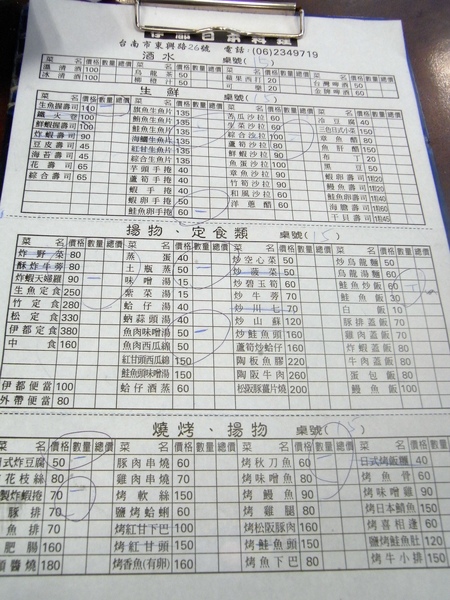 伊都日本料理
台南市東興路26號 電話:(06)2349719
酒水 桌號(15)
菜名 價格 數量 總價 菜名 價格 數量 總價 菜名 價格 數量 總價 菜名 價格 數量 總價
溫清酒 100 烏龍茶 20 可果西打 20 台灣啤酒 60
冰清酒 100 柳橙汁 50 可樂 20 金牌啤酒 60
生鮮 桌號(15)
菜名 價格 數量 總價 菜名 價格 數量 總價 菜名 價格 數量 總價 菜名 價格 數量 總價
生魚握壽司 110 旗魚生魚片 135 苦瓜沙拉 冷豆腐 40
100 鮪魚生魚片 135 生菜沙拉 三色日式小菜 150
鮮蝦握壽司 90 鮭魚生魚片 135 綜合沙拉 章魚醋 80
炸蝦壽司 90 海鱺生魚片 135 魚卵沙拉 魚肝醋 80
豆皮壽司 45 紅甘生魚片 135 鮮蝦沙拉 90 布丁 20
海苔壽司 45 綜合生魚片 135 魚蛋沙拉 50 黑豆 30
花壽司 65 芋頭手捲 40 章魚沙拉 90 蝦卵壽司
綜合壽司 65 蘆筍手捲 40 竹筍沙拉 90 鰻魚壽司
蝦手捲 50 和風沙拉 60 鮭魚壽司
蝦卵手捲 50 洋蔥醋 60 海膽壽司
鮭魚卵手捲 60 干貝壽司
揚物、定食類 桌號(15)
菜名 價格 數量 總價 菜名 價格 數量 總價 菜名 價格 數量 總價 菜名 價格 數量 總價
炸野菜 80 蒸蛋 40 炒空心菜 50 炒烏龍麵 60
酥炸牛蒡 80 土瓶蒸 50 炒菠菜 50 烏龍湯麵 60
炸蝦天婦羅 90 味噌湯 15 炒碧玉筍 60 鮭魚炒飯 60
生魚定食 250 紫菜湯 15 炒牛蒡 70 鮭魚飯 30
竹定食 280 蛤仔湯 40 炒川七 70 白飯 10
松定食 330 蚋蒜頭湯 40 炒山蘇 120 豚排蓋飯 80
伊都定食 380 魚肉味噌湯 50 炒鮭魚頭 150 雞肉蓋飯 80
中食 160 魚肉西瓜綿 50 蘆筍炒蛤仔 160 炸蝦蓋飯 80
紅甘頭西瓜綿 150 陶板魚膠 220 牛肉蓋飯 80
鮭魚頭味噌湯 150 陶阪牛肉 260 蛋包飯 80
伊都便當 100 蛤仔酒蒸 60 松阪豚薑片燒 200 鰻魚飯
外帶便當 80
燒烤、揚物 桌號(15)
菜名 價格 數量 總價 菜名 價格 數量 總價 菜名 價格 數量 總價 菜名 價格 數量 總價
日式炸豆腐 50 豚肉串燒 60 烤秋刀魚 60 日式烤飯糰 40
花枝絲 80 雞肉串燒 70 烤味噌魚 80 烤魚骨 60
製炸蝦捲 70 烤軟絲 150 烤鰻魚 90 烤味噌雞 90
豚排 70 鹽烤蛤蜊 60 烤雞腿 80 烤日本鯖魚 150
魚排 70 烤紅甘下巴 100 烤松阪豚肉 160 烤喜相逢 60
肥腸 160 烤紅甘頭 150 烤鮭魚頭 150 鹽烤鮭魚肚 120
醬燒 180 烤香魚(有卵) 160 烤魚下巴 80 烤牛小排 150